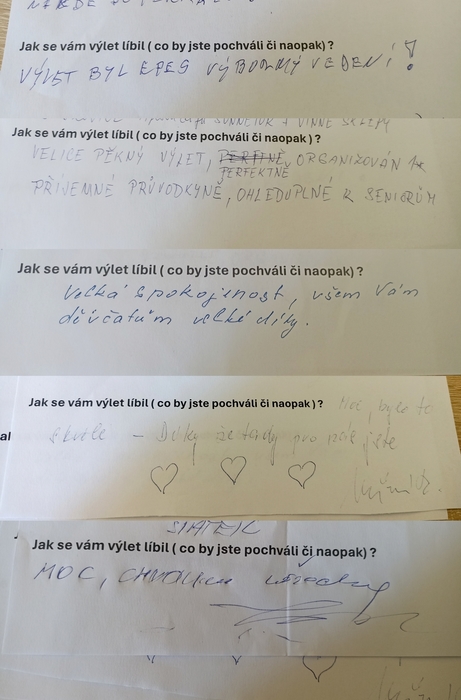 Jak se vám výlet líbil ( co by jste pochváli či naopak) ?
VÝLET BYL VÝBORNÝ VEDENÍ!
SUNNETUK A VINNÉ SKLEPY
Jak se vám výlet líbil ( co by jste pochváli či naopak) ?
VELICE PĚKNÝ VÝLET, PERFEKTNĚ ORGANIZOVÁN
PŘÍJEMNÉ PRŮVODKYNĚ, OHLEDUPLNÉ K SENIORŮM
Jak se vám výlet líbil ( co by jste pochváli či naopak) ?
Velká spokojenost, všem Vám
děvčatům velké díky.
Jak se vám výlet líbil ( co by jste pochváli či naopak) ? Moc, bylo to
al skvělé – Díky že tady pro nás jste
Jak se vám výlet líbil ( co by jste pochváli či naopak) ?
MOC, CHVÁLÍM všechny